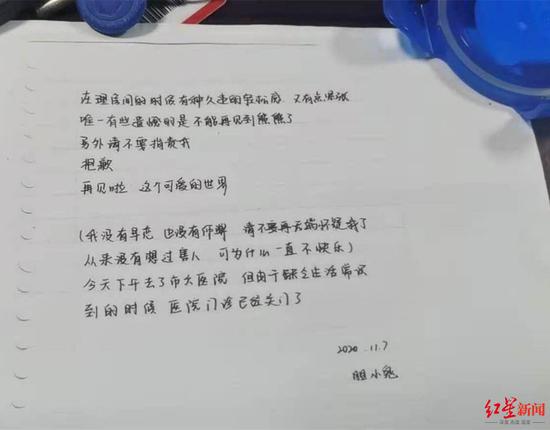 在理房间的时候有种久违的轻松感 又有点紧张
唯一有些遗憾的是不能再见到熊熊了
另外请不要指责我
抱歉
再见啦 这个可爱的世界
(我没有早恋 也没有作弊 请不要再无端怀疑我了
从来没有想过害人 可为什么一直不快乐)
今天下午去了市六医院 但由于缺乏生活常识
到的时候 医院门诊已经关门了
2020.11.7
胆小鬼
红星新闻
深度 态度 温度